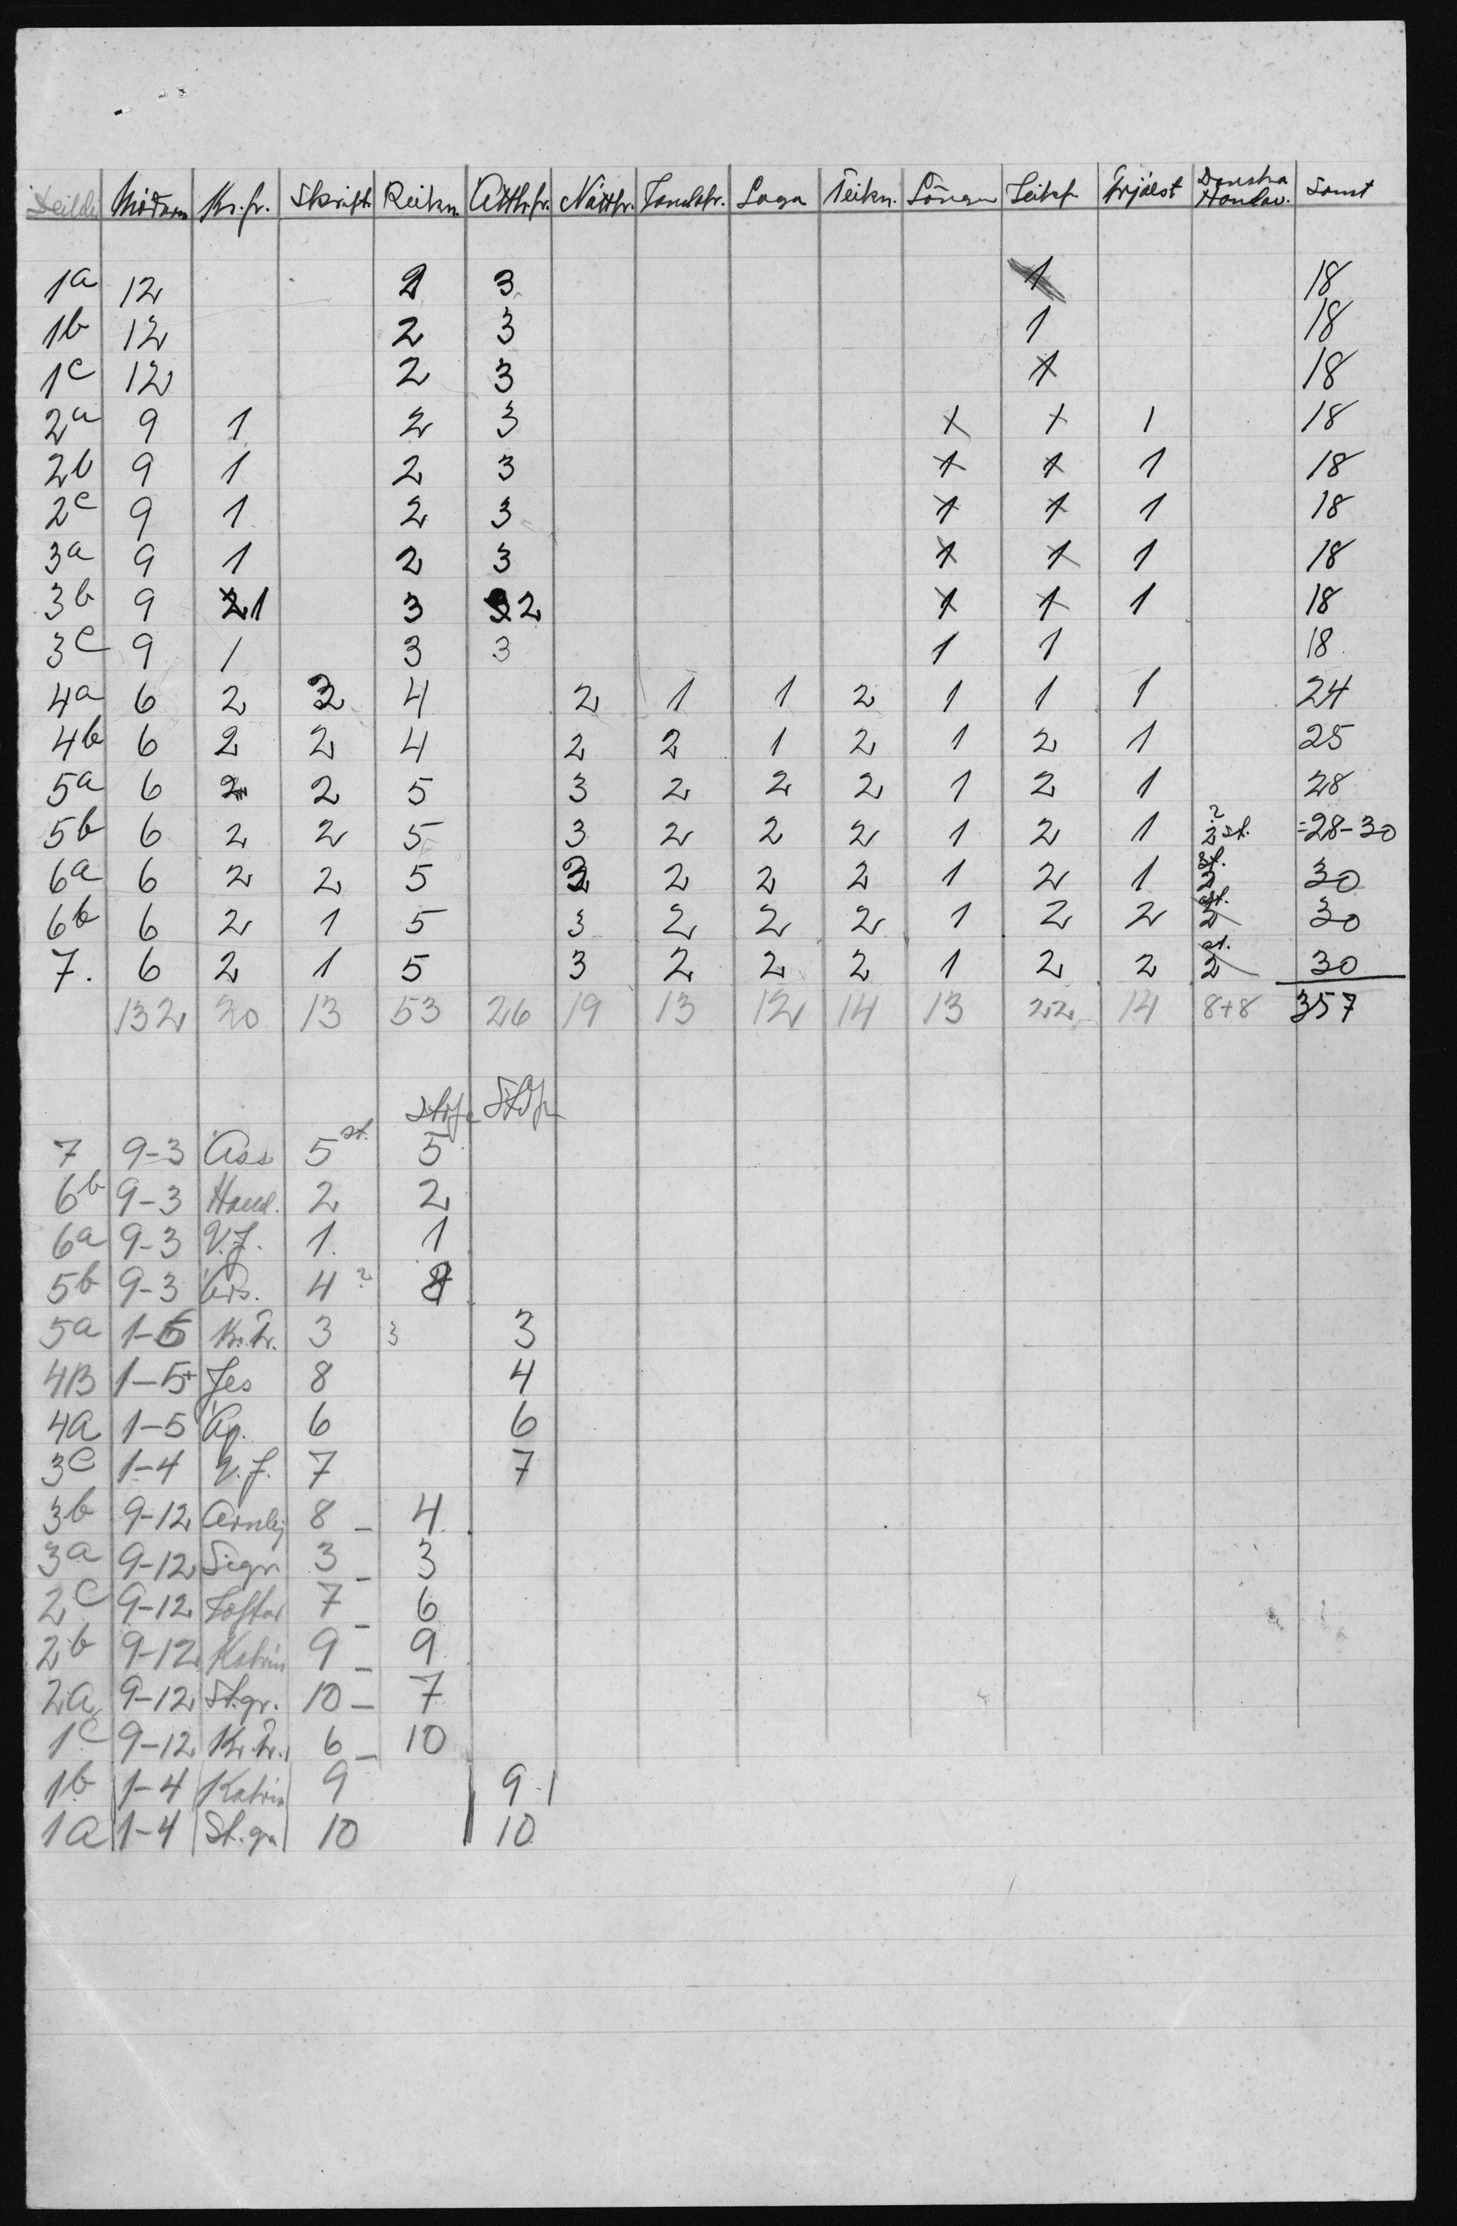 Deildir Móðurm Kr.fr. Skrift Reikn. Átthfr. Náttfr. Landafr. Saga Teikn. Söngur Leikf. Frjálst Danska Handav. Samt
1a 12 2 3 1 18
1b 12 2 3 1 18
1c 12 2 3 1 18
2a 9 1 2 3 1 1 1 18
2b 9 1 2 3 1 1 1 18
2c 9 1 2 3 1 1 1 18
3a 9 1 2 3 1 1 1 18
3b 9 21 3 2 1 1 1 18
3c 9 1 3 3 1 1 18
4a 6 2 2 4 2 1 1 2 1 1 1 24
4b 6 2 2 4 2 2 1 2 1 2 1 25
5a 6 2 2 5 3 2 2 2 1 2 1 28
5b 6 2 2 5 3 2 2 2 1 2 1 ? 2 st. =28-30
6a 6 2 2 5 3 2 2 2 1 2 1 st. 2 30
6b 6 2 1 5 3 2 2 2 1 2 2 st. 2 30
7. 6 2 1 5 3 2 2 2 1 2 2 st. 2 30
132 20 13 53 26 19 13 12 14 13 22 14 8+8 357
7 9-3 Áss 5 st. 5
6b 9-3 Hand. 2 2
6a 9-3 V.J. 1. 1
5b 9-3 4 ? 8
5a 1-6 Kr.Tr. 3 3 3
4B 1-5+ Jes 8 4
4a 1-5 Ág. 6 6
3c 1-4 V.J. 7 7
3b 9-12 8 - 4
3a 9-12 Sigr. 3 - 3
2c 9-12 Loftur 7 - 6
2b 9-12 Katrín 9 - 9
2a 9-12 St.gr. 10 - 7
1c 9-12 Kr.Tr. 6 - 10
1b 1-4 Katrín 9 9-1
1a 1-4 St.gr 10 10